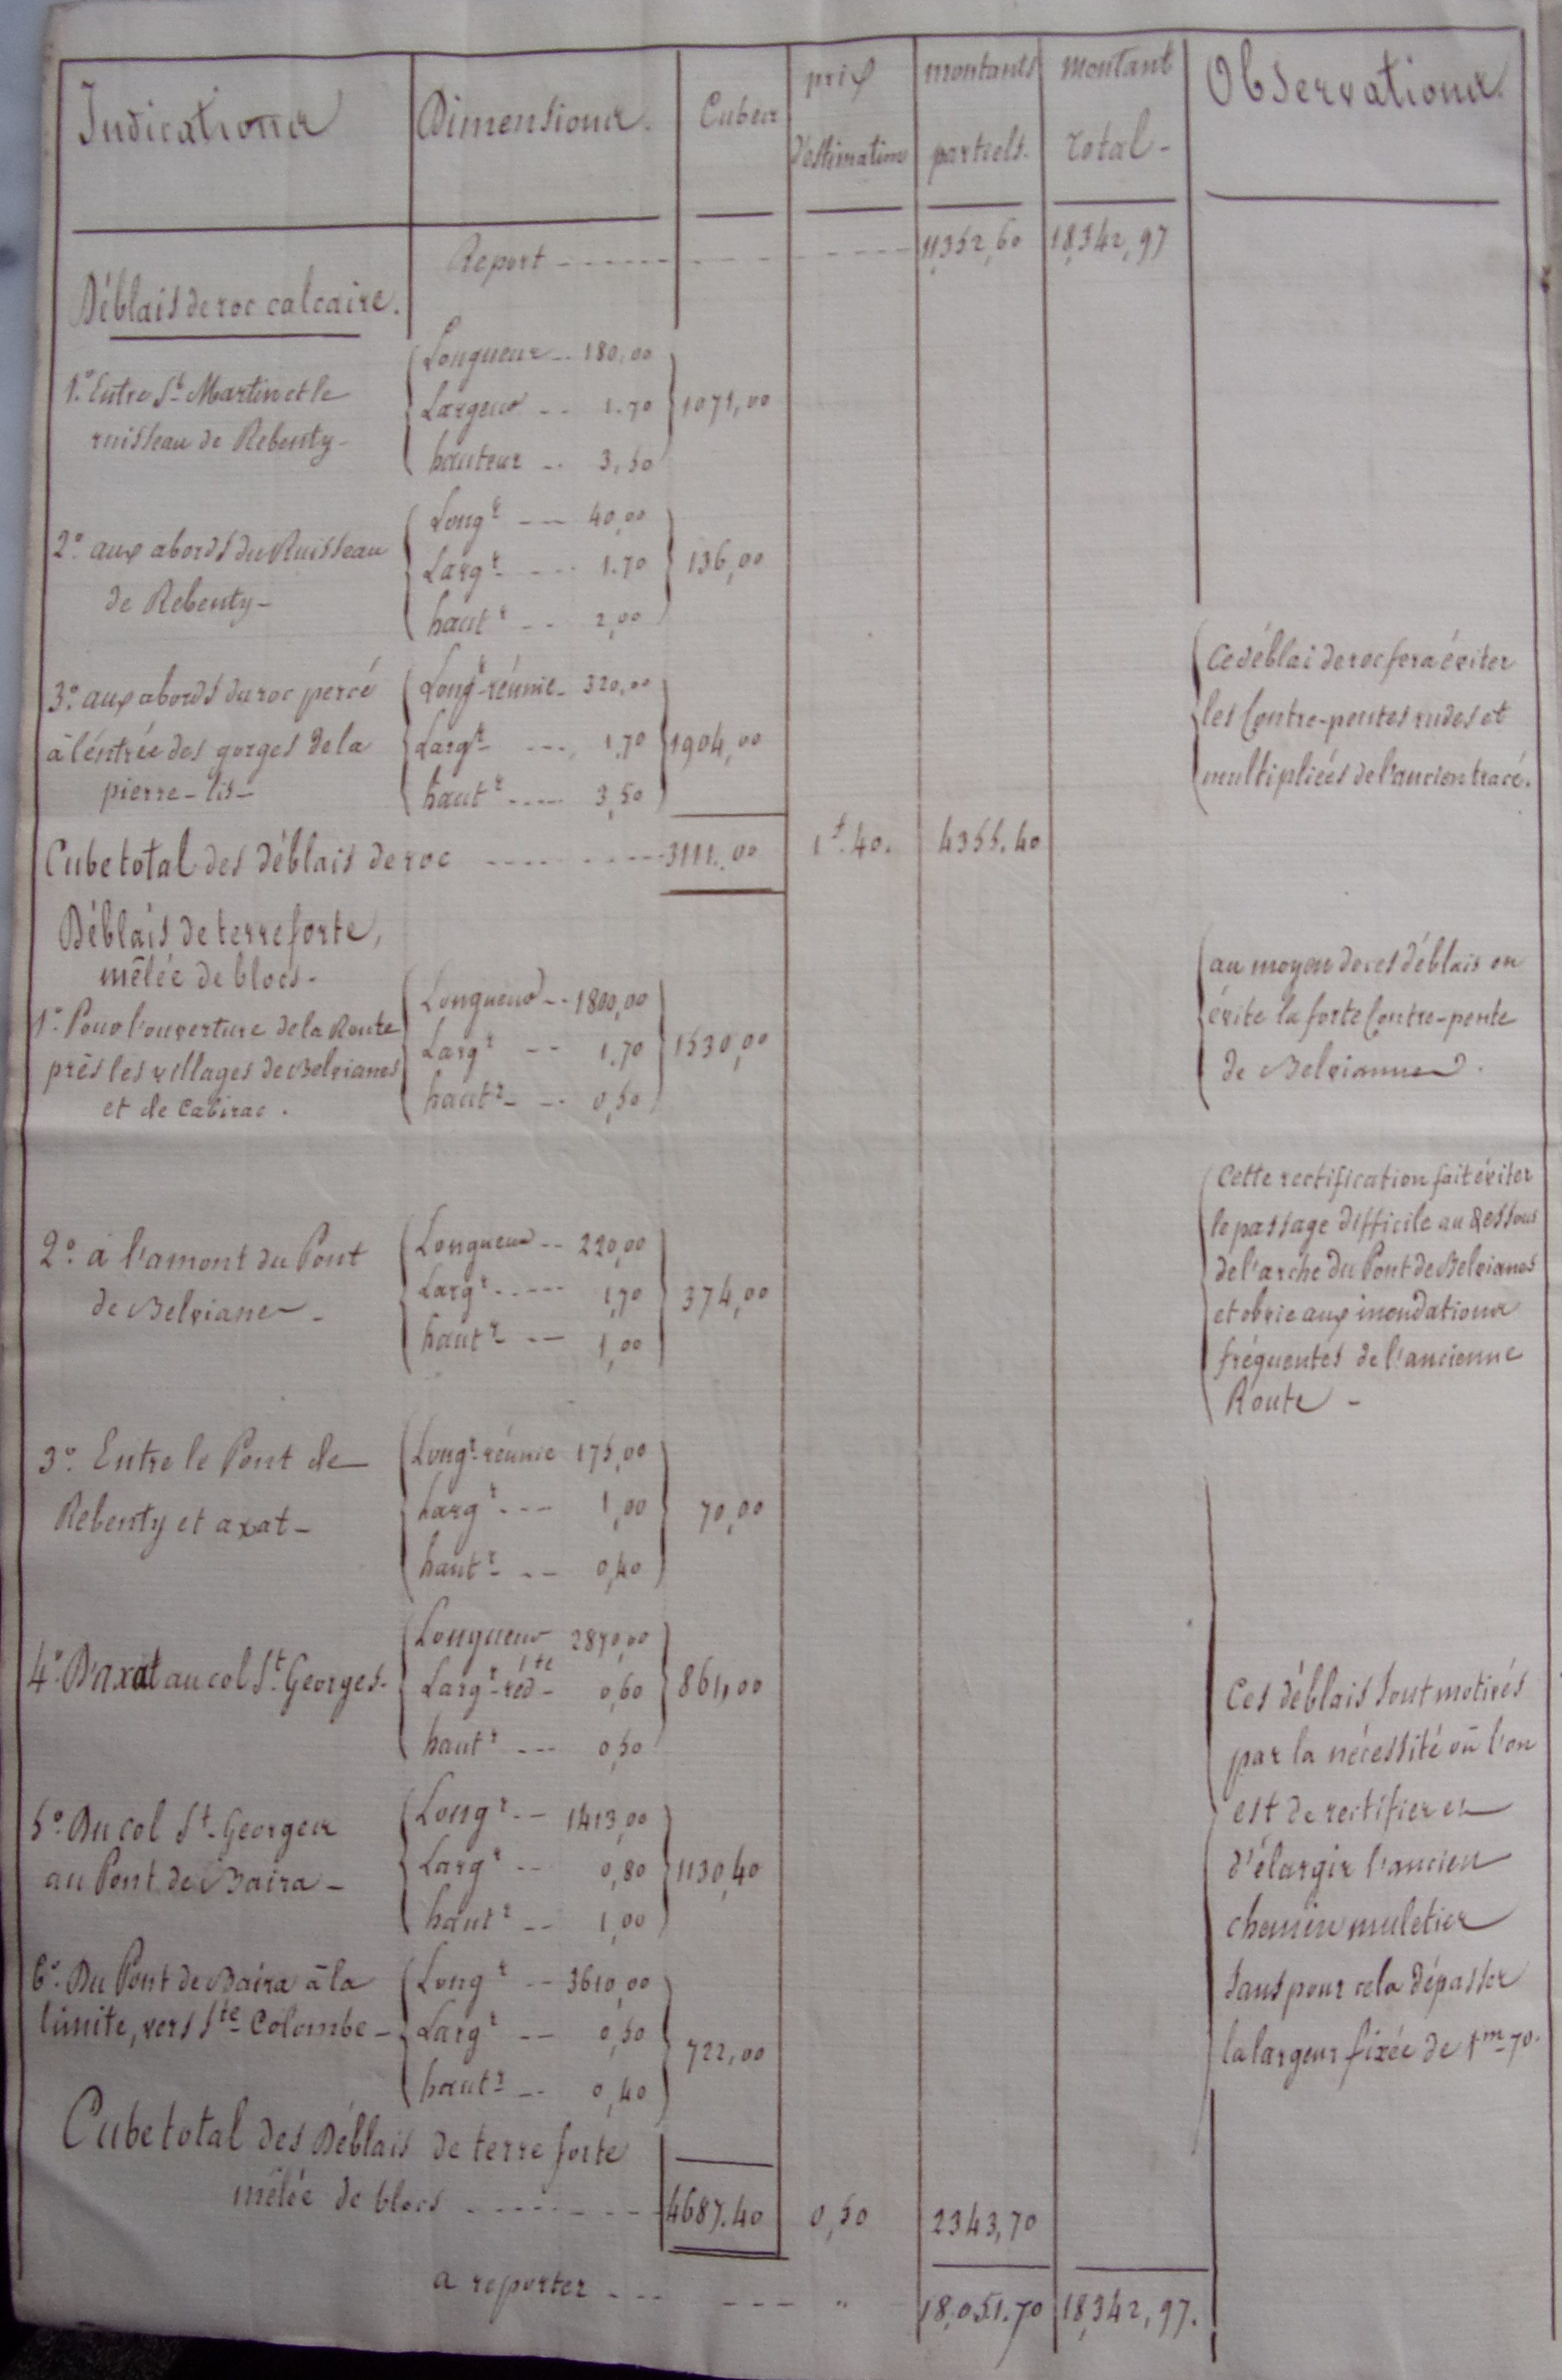 Indications Dimensions. Cubes prix d'estimation montants partiels. montant total - Observations.
Report - - - - - - 11,352,60 18,342,97
Déblais de roc calcaire.
1.° Entre St Martin et le
ruisseau de Rebenty -
Longueur -- 180,00
Largeur -- 1.70
hauteur -- 3,50
1071,00
2.° aux abords du Ruisseau
de Rebenty -
Longr --- 40,00
Largr --- 1.70
hautr -- 2,00
136,00
3.° aux abords du roc percé
à l'éntrée des gorges de la
pierre-lis -
Longr réunie - 320,00
Largr --- 1,70
hautr ---- 3,50
1904,00
Ce déblai de roc fera éviter
les Contre-pentes rudes et
multipliées de l'ancien tracé.
Cube total des déblais de roc ---- 3111.00 1f.40. 4355.40
Déblais de terre forte,
mêlée de blocs -
1.° Pour l'ouverture de la Route
près les villages de Belvianes
et de Cavirac.
Longueur -- 1800,00
Largr -- 1.70
hautr -- 0,50
1530,00
au moyen de ces déblais on
évite la forte Contre-pente
de Belvianes.
2.° à l'amont du Pont
de Belvianes -
Longueur -- 220,00
Largr ---- 1,70
hautr -- 1,00
374,00
Cette rectification fait éviter
le passage difficile au dessous
de l'arche du Pont de Belvianes
et obvie aux inondations
fréquentes de l'ancienne
Route -
3.° Entre le Pont de
Rebenty et axat -
Longr réunie 175,00
Largr --- 1,00
hautr -- 0,40
70,00
4.° D'axat au col St Georges -
Longueur 2870,00
Largr réd ite - 0,60
hautr --- 0,50
861,00
5.° Du col St Georges
au Pont de Baira -
Longr -- 1413,00
Largr -- 0,80
hautr -- 1,00
1130,40
6.° Du Pont de Baira à la
limite, vers Ste Colombe -
Longr -- 3610,00
Largr -- 0,50
hautr -- 0,40
722,00
Ces déblais sont motivés
par la nécessité où l'on
est de rectifier et
d'élargir l'ancien
chemin muletier
sans pour cela dépasser
la largeur fixée de 1m 70.
Cube total des Déblais de terre forte
mêlée de blocs ------ 4687.40 0,50 2343,70
a reporter --- --- " 18,051.70 18,342,97.